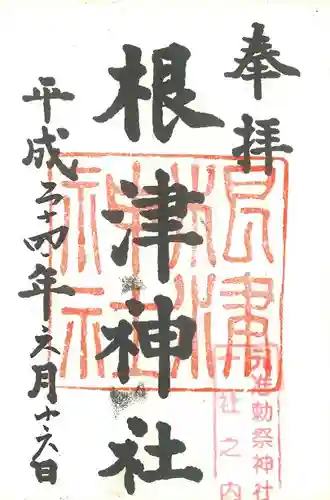 奉拝
根津神社
平成二十四年六月十六日
根津神社
准勅祭神社
十社之内